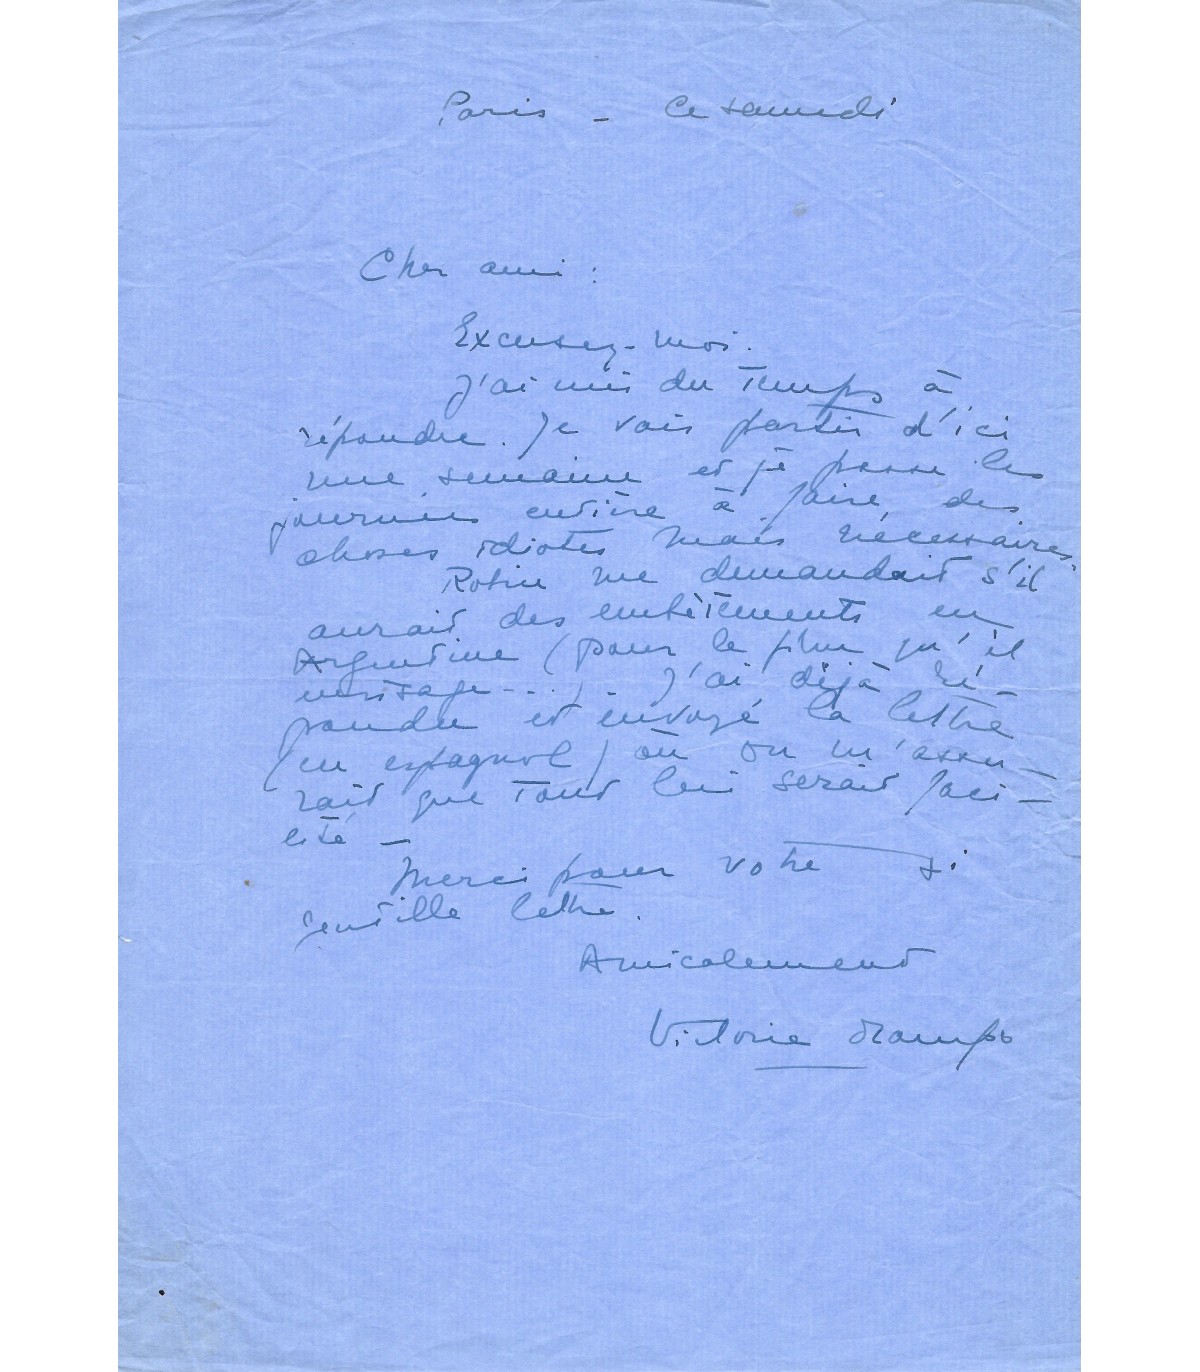 Paris - Ce samedi
Cher ami :
Excusez-moi.
J'ai mis du temps à
répondre. Je vais partir d'ici
une semaine et je passe les
journées entière à faire des
choses idiotes mais nécessaires.
Robin me demandait s'il
aurait des embêtements en
Argentine (pour le film qu'il
envisage ...). J'ai déjà ré-
pondu et envoyé la lettre
(en espagnol) où on m'assu-
rait que tout lui serait faci-
lité -
Merci pour votre si
gentille lettre.
Amicalement
Victoria Ocampo